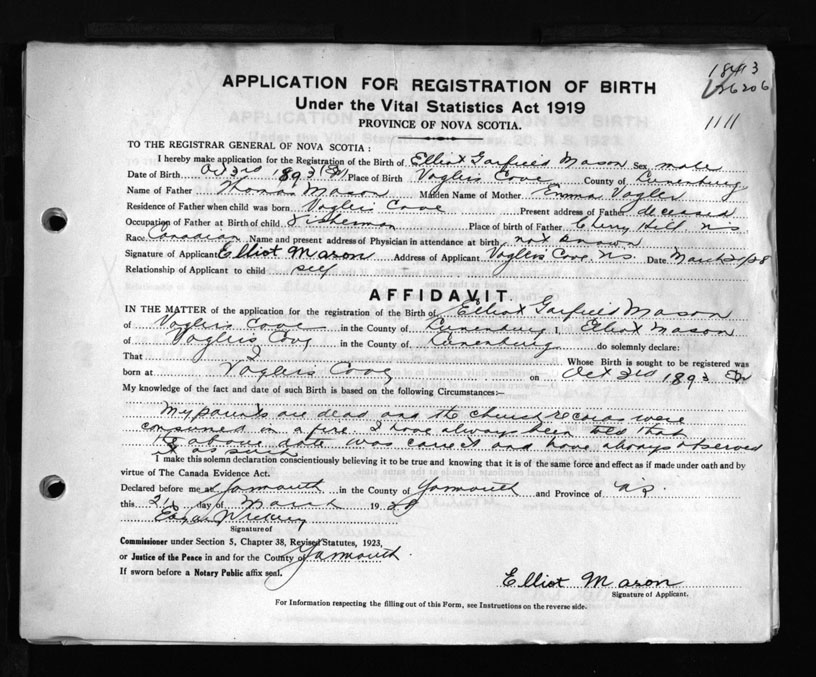 1893
26206
1111
APPLICATION FOR REGISTRATION OF BIRTH
Under the Vital Statistics Act 1919
PROVINCE OF NOVA SCOTIA.
TO THE REGISTRAR GENERAL OF NOVA SCOTIA :
I hereby make application for the Registration of the Birth of Elliot Garfield Mason Sex male
Date of Birth Oct 3rd 1893 Place of Birth Voglers Cove County of Lunenburg
Name of Father Thomas Mason Maiden Name of Mother Emma Vogler
Residence of Father when child was born Voglers Cove Present address of Father deceased
Occupation of Father at Birth of child Fisherman Place of birth of Father Cherry Hill N.S.
Race Canadian Name and present address of Physician in attendance at birth not known
Signature of Applicant Elliot Mason Address of Applicant Voglers Cove, N.S. Date March
Relationship of Applicant to child self
AFFIDAVIT.
IN THE MATTER of the application for the registration of the Birth of Elliot Garfield Mason
of Voglers Cove in the County of Lunenburg I, Elliot Mason
of Voglers Cove in the County of Lunenburg do solemnly declare:
That I Whose Birth is sought to be registered was
born at Voglers Cove on Oct 3rd 1893
My knowledge of the fact and date of such Birth is based on the following Circumstances:—
My parents are dead and the church records were
consumed in a fire. I have always been told that
the above date was correct and have always observed
it as such
I make this solemn declaration conscientiously believing it to be true and knowing that it is of the same force and effect as if made under oath and by
virtue of The Canada Evidence Act.
Declared before me at Yarmouth in the County of Yarmouth and Province of N.S.
this day of March 19
Signature of
Commissioner under Section 5, Chapter 38, Revised Statutes, 1923,
or Justice of the Peace in and for the County of Yarmouth.
If sworn before a Notary Public affix seal.
Elliot Mason
Signature of Applicant.
For Information respecting the filling out of this Form, see Instructions on the reverse side.